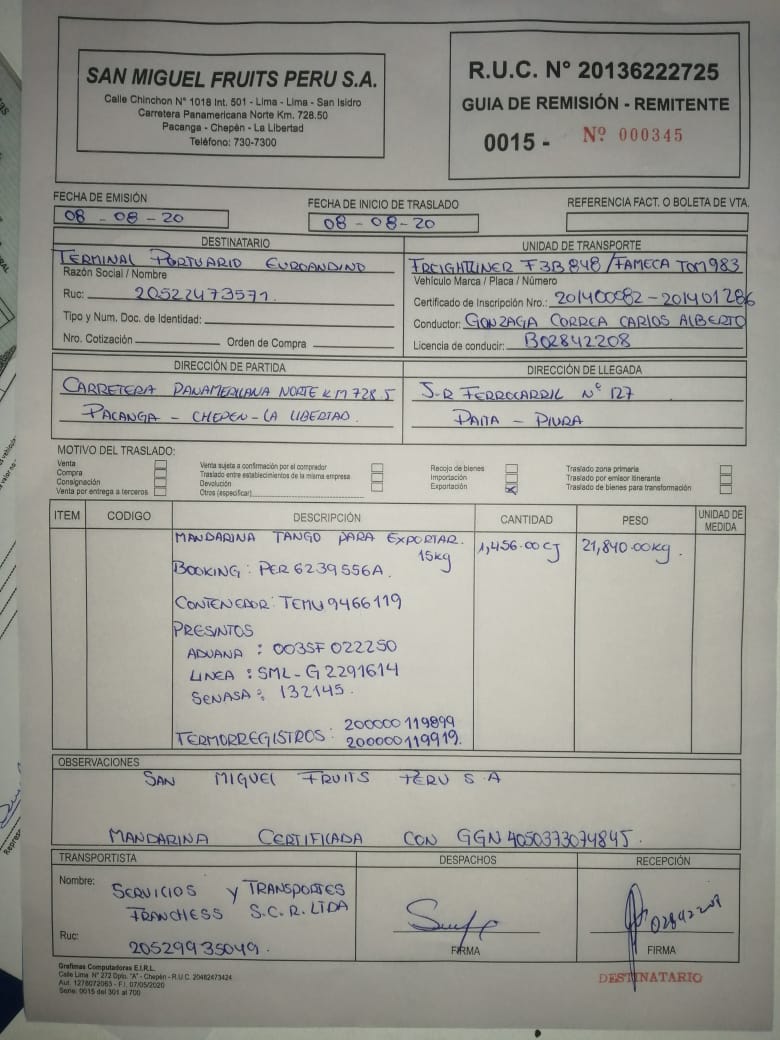 SAN MIGUEL FRUITS PERU S.A.
Calle Chinchon N° 1018 Int. 501 - Lima - Lima - San Isidro
Carretera Panamericana Norte Km. 728.50
Pacanga - Chepén - La Libertad
Teléfono: 730-7300
R.U.C. N° 20136222725
GUIA DE REMISIÓN - REMITENTE
0015 - Nº 000345
FECHA DE EMISIÓN
08 - 08 - 20
FECHA DE INICIO DE TRASLADO
08 - 08 - 20
REFERENCIA FACT. O BOLETA DE VTA.
DESTINATARIO
TERMINAL PORTUARIO EUROANDINO
Razón Social / Nombre
Ruc: 20522473571.
Tipo y Num. Doc. de Identidad:
Nro. Cotización Orden de Compra
UNIDAD DE TRANSPORTE
FREIGHTLINER F3B848/FAMECA TOM983
Vehículo Marca / Placa / Número
Certificado de Inscripción Nro.: 201400082-201401286
Conductor: GONZAGA CORREA CARLOS ALBERTO
Licencia de conducir: B02842208
DIRECCIÓN DE PARTIDA
CARRETERA PANAMERICANA NORTE KM 728.5
PACANGA - CHEPEN - LA LIBERTAD.
DIRECCIÓN DE LLEGADA
J-R FERROCARRIL Nº 127
PAITA - PIURA
MOTIVO DEL TRASLADO:
Venta
Compra
Consignación
Venta por entrega a terceros
Venta sujeta a confirmación por el comprador
Traslado entre establecimientos de la misma empresa
Devolución
Otros (especificar)
Recojo de bienes
Importación
Exportación
Traslado zona primaria
Traslado por emisor itinerante
Traslado de bienes para transformación
ITEM CODIGO DESCRIPCIÓN CANTIDAD PESO UNIDAD DE MEDIDA
MANDARINA TANGO PARA EXPORTAR. 1,456.00 CJ 21,840.00 KG.
15kg
BOOKING: PER 6239556A.
CONTENEDOR: TEMU 9466119
PRESINTOS
ADUANA : 003SF022250
LINEA : SML-G2291614
SENASA : 132145.
TERMORREGISTROS: 200000119899
200000119919.
OBSERVACIONES
SAN MIGUEL FRUITS PERU S A
MANDARINA CERTIFICADA CON GGN 4050373074845.
TRANSPORTISTA
Nombre: SERVICIOS Y TRANSPORTES
FRANCHESS S.C.R. LTDA
Ruc: 20529935049.
DESPACHOS
FIRMA
RECEPCIÓN
02842208
FIRMA
DESTINATARIO
Grafimas Computadoras E.I.R.L.
Calle Lima N° 272 Dpto. "A" - Chepén - R.U.C. 20482473424
Aut. 1278072063 - F.I. 07/05/2020
Serie: 0015 del 301 al 700